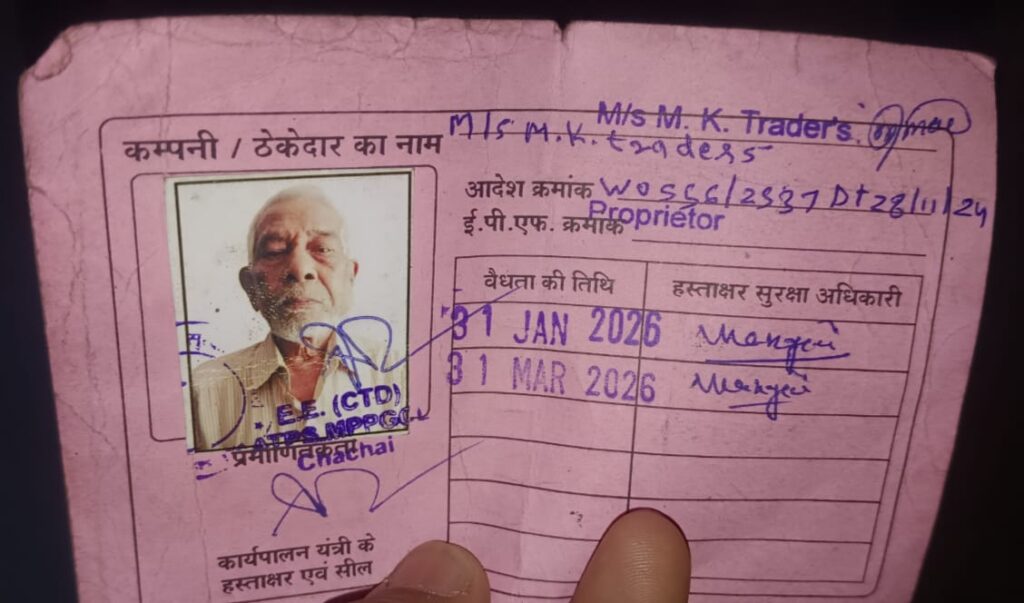 M/s M. K. Trader's.
कम्पनी / ठेकेदार का नाम M/s M.K. traders
आदेश क्रमांक WO 556/2537 Dt 28/11/24
Proprietor
ई.पी.एफ. क्रमांक
वैधता की तिथि हस्ताक्षर सुरक्षा अधिकारी
31 JAN 2026
31 MAR 2026
E.E. (CTD)
ATPS MPPGCL
Chachai
प्रमाणितकर्ता
कार्यपालन यंत्री के
हस्ताक्षर एवं सील